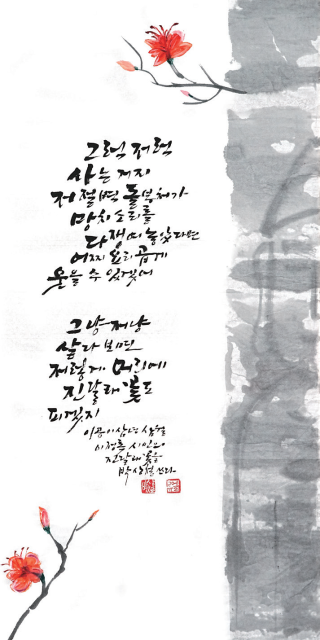 그럭 저럭
사는 거지
저 절벽 돌부처가
망치 소리를
다 쟁여 놓았다면
어찌 요리 곱게
웃을 수 있겠어
그냥 저냥
살다 보면
저렇게 머리에
진달래 꽃도
피겠지
이공이삼년 삼월
이정록 시인의
진달래꽃을
박상설 쓰다